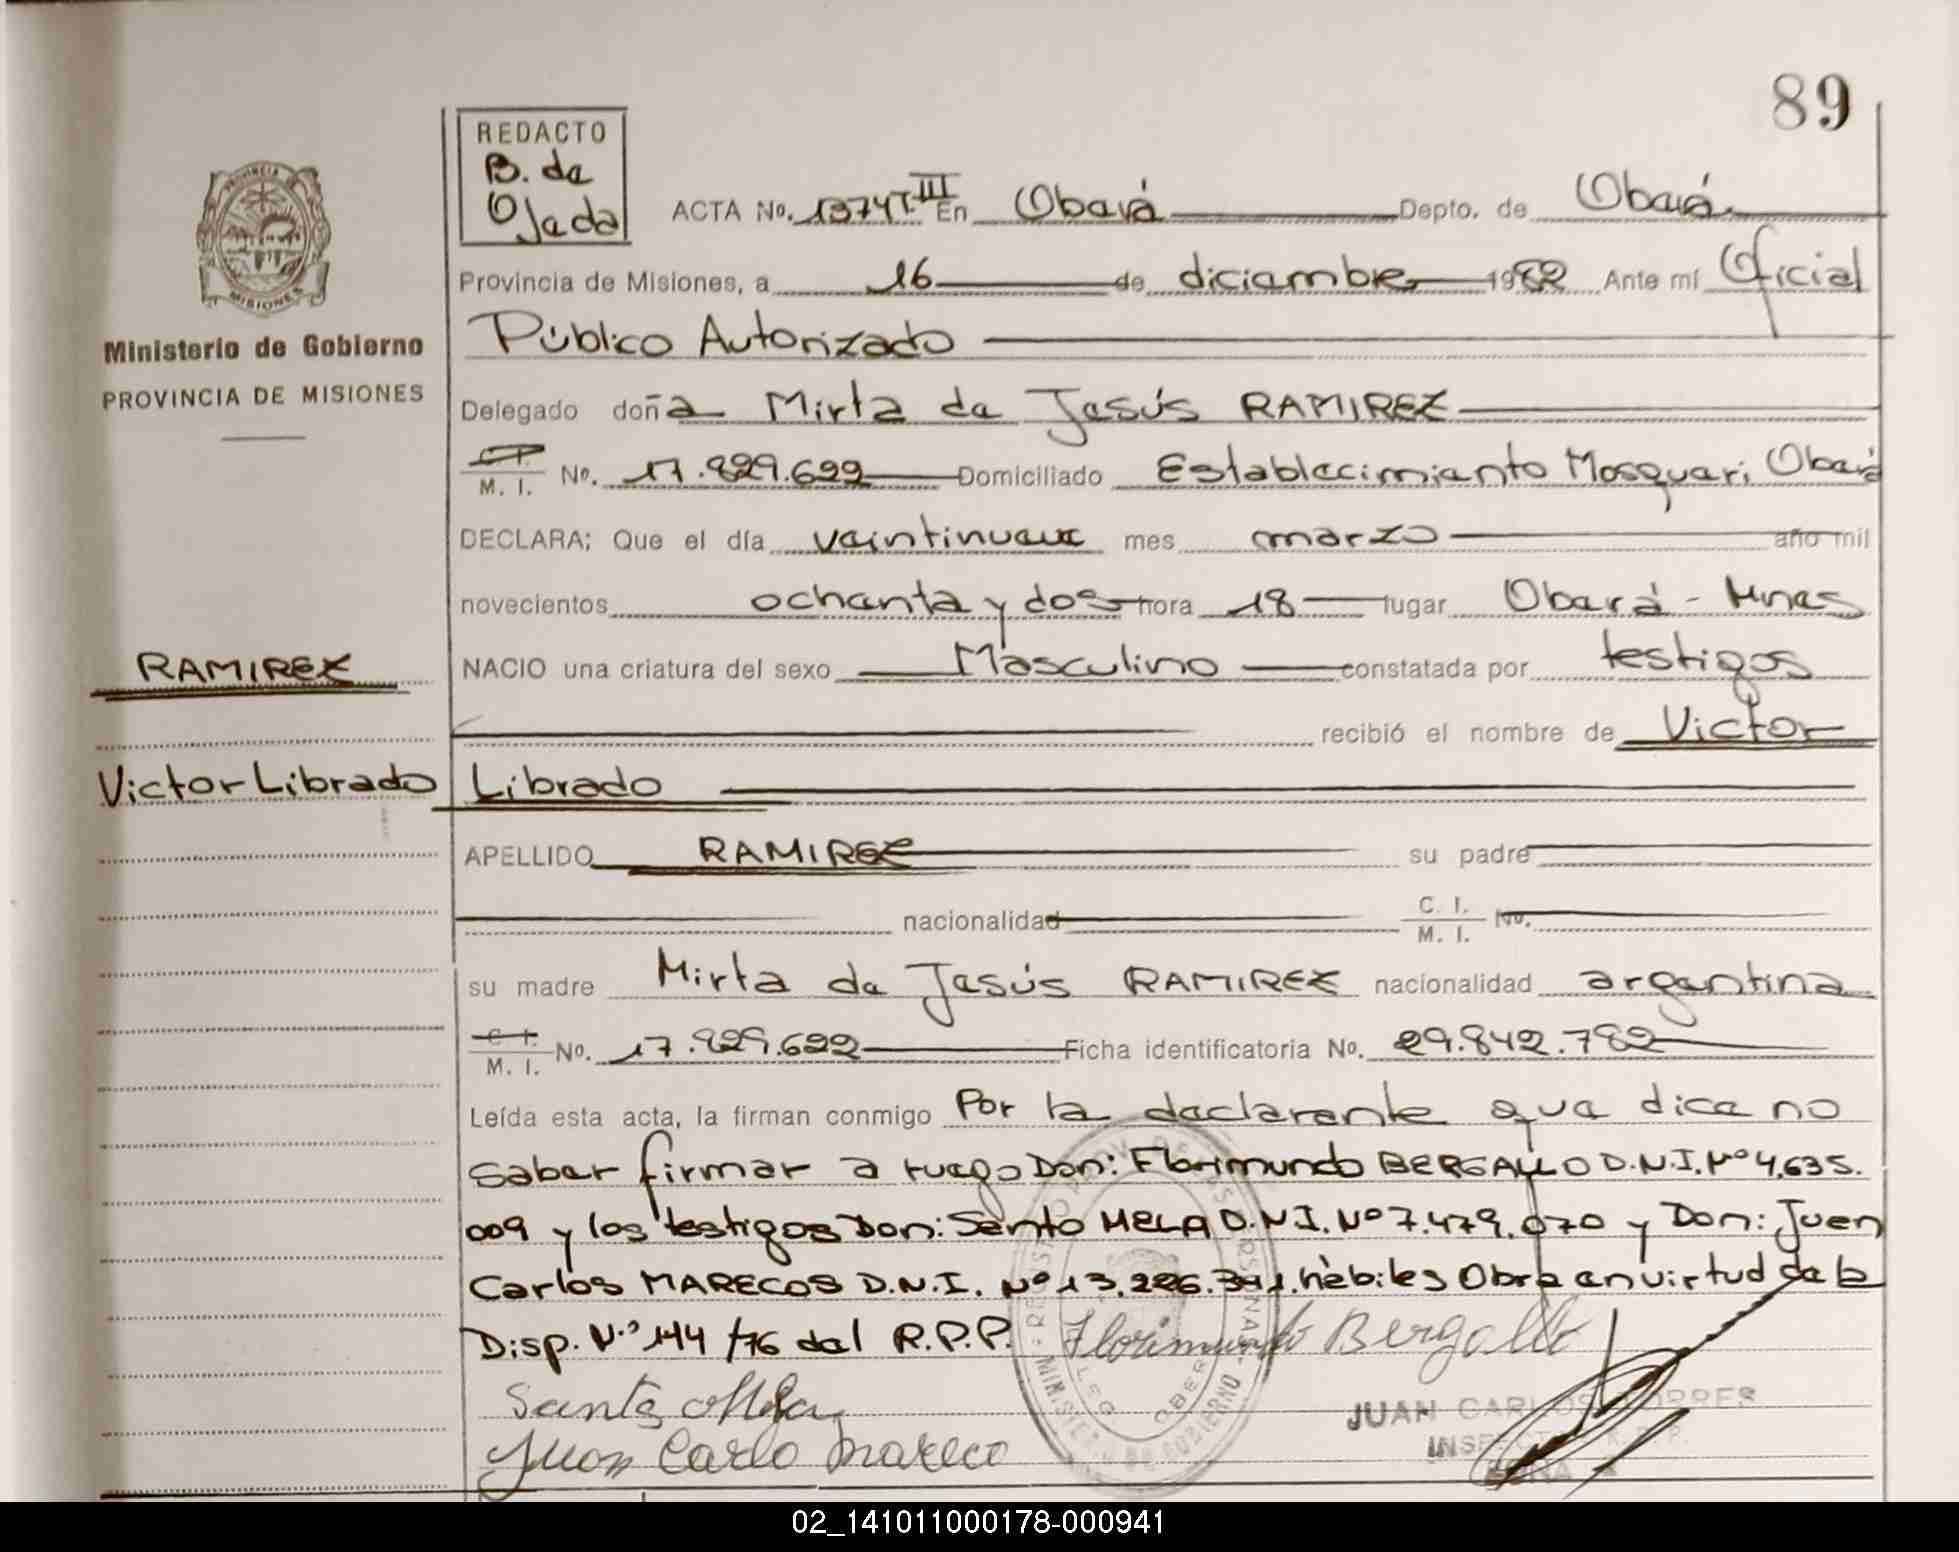 89
REDACTO
B. de
Ojeda
ACTA No. 1374 T. III En Oberá Depto. de Oberá
Provincia de Misiones, a 16 de diciembre 1982 Ante mí Oficial
Ministerio de Gobierno
PROVINCIA DE MISIONES
Público Autorizado
Delegado doña Mirta de Jesús RAMIREZ
C. I. M. I. No. 17.829.622 Domiciliado Establecimiento Mosqueri Oberá
DECLARA; Que el día veintinueve mes marzo año mil
novecientos ochenta y dos hora 18 lugar Oberá - Mnes
RAMIREZ
NACIO una criatura del sexo Masculino constatada por testigos
recibió el nombre de Victor
Victor Librado
Librado
APELLIDO RAMIREZ su padre
nacionalidad C. I. M. I. No.
su madre Mirta de Jesús RAMIREZ nacionalidad argentina
C. I. M. I. No. 17.829.622 Ficha identificatoria No. 29.842.782
Leída esta acta, la firman conmigo Por la declarante que dice no
saber firmar a ruego Don: Florimundo BERGALLO D.N.I. Nº 4.635.
009 y los testigos Don: Santo MELA D.N.I. Nº 7.479.070 y Don: Juan
Carlos MARECOS D.N.I. Nº 13.226.391. hábiles Obra en virtud de la
Disp. Nº 144/76 del R.P.P. Florimundo Bergallo
Juan Carlo Mareco
JUAN CARLOS TORRES
MINISTERIO DE GOBIERNO
02_141011000178-000941